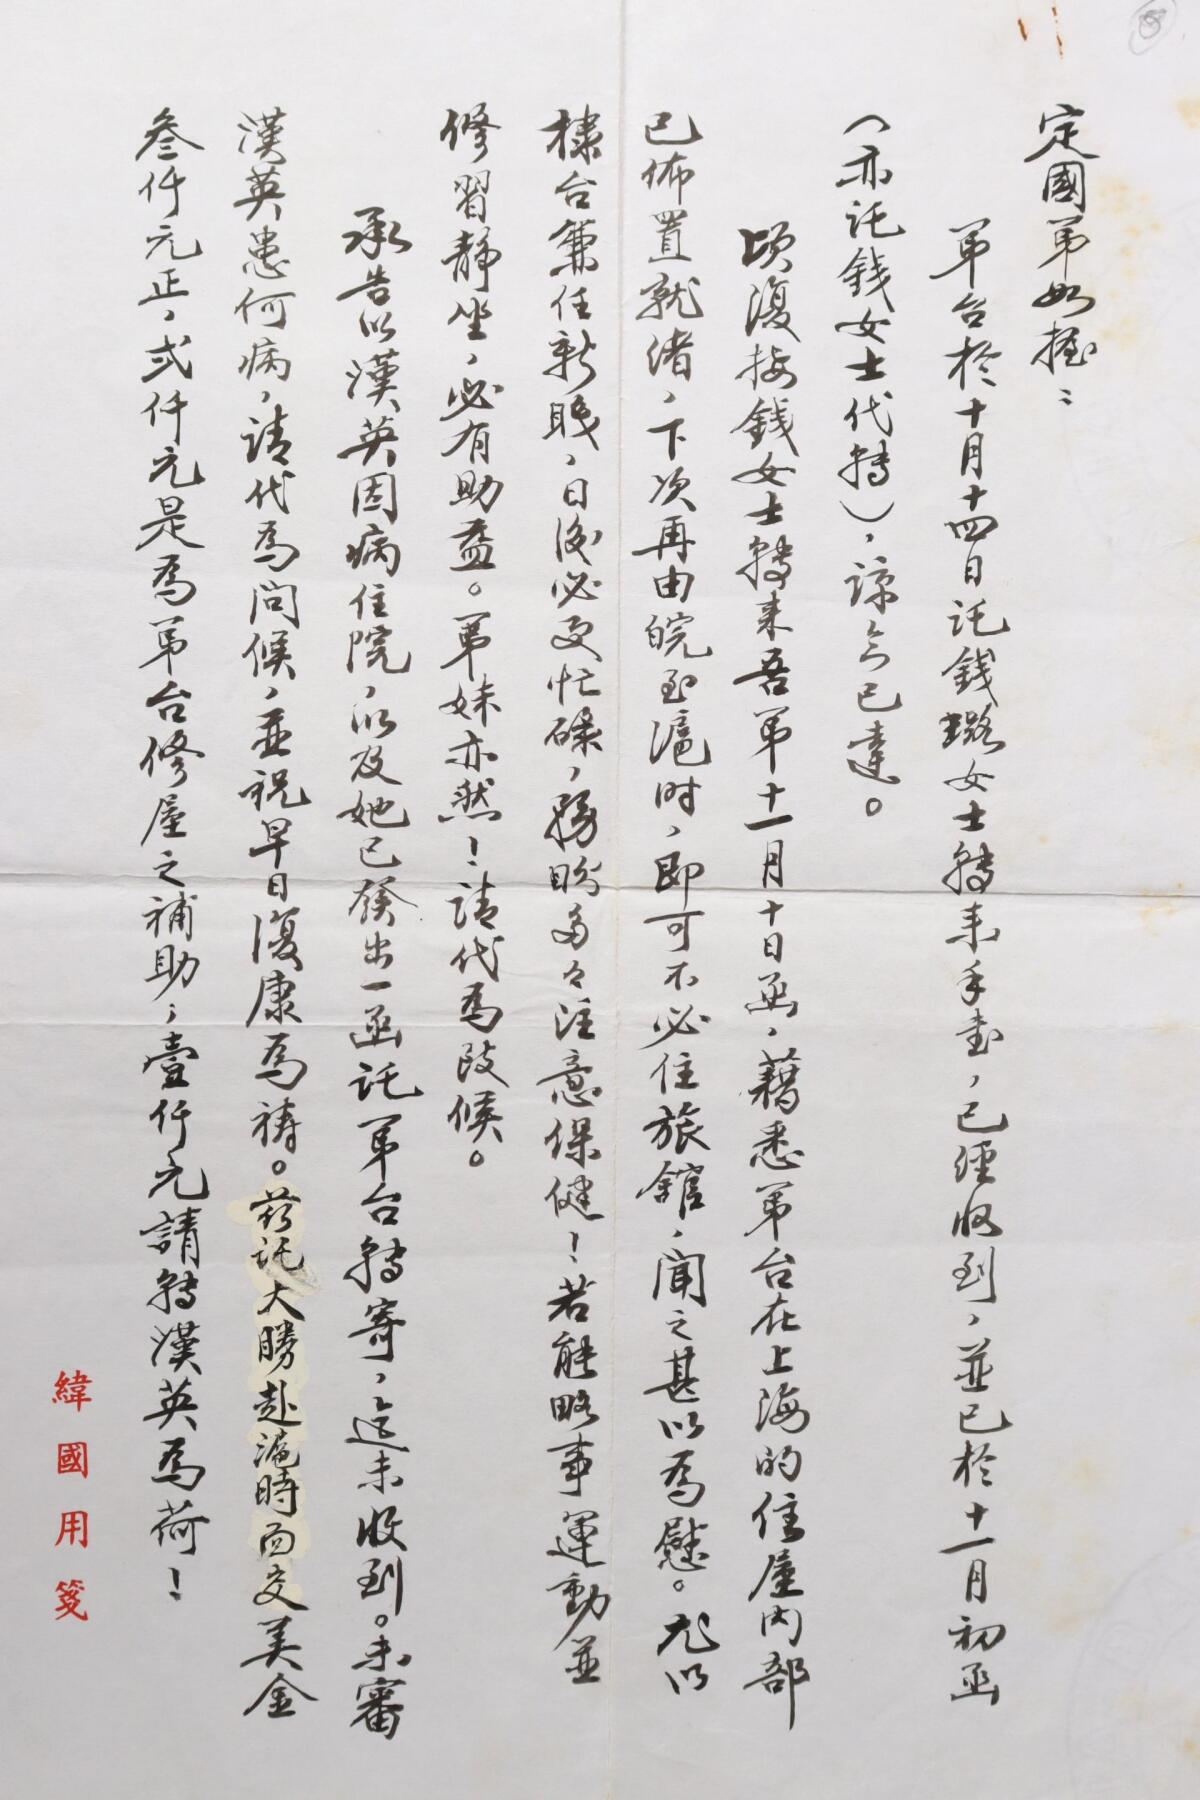 定國弟如握：
弟台於十月十四日託錢璐女士轉来手書，已經收到，並已於十一月初函
（亦託錢女士代轉），諒已達。
頃復接錢女士轉来吾弟十一月十日函，藉悉弟台在上海的住屋内部
已佈置就緒，下次再由皖至滬时，即可不必住旅館，聞之甚以為慰。尤以
棣台兼任新職，日後必更忙碌，務盼多々注意保健！若能略事運動並
修習靜坐，必有助益。弟妹亦然！請代為致候。
承告以漢英因病住院，以及她已發出一函託弟台轉寄，迄未收到。未審
漢英患何病，請代為問候，並祝早日復康為禱。茲託大勝赴滬時面交美金
叁仟元正，弍仟元是為弟台修屋之補助；壹仟元請轉漢英為荷！
緯國用箋